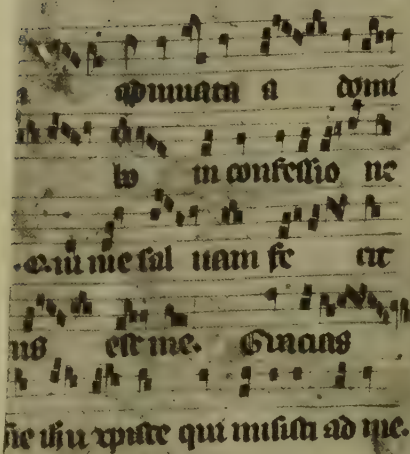 adiuuata a domi
bo in confessio ne
Qui me sal uam fe cit
us est me. Gracias
ne ihu xpiste qui misisti ad me.